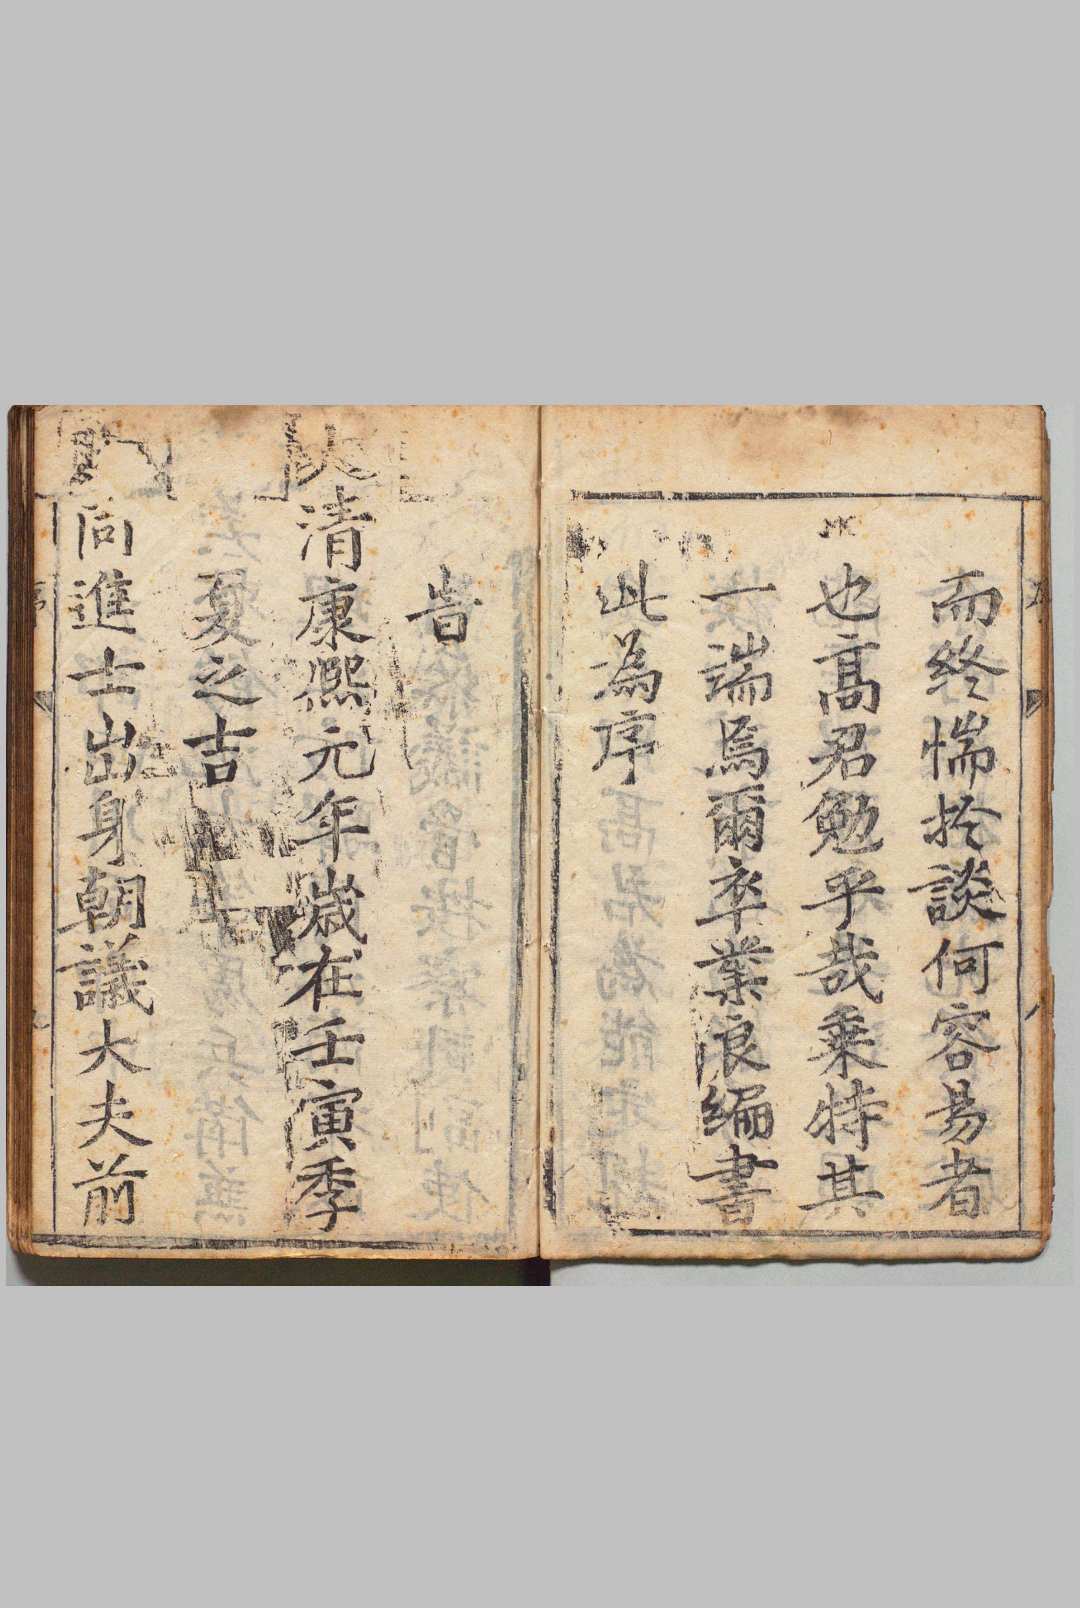 而終惴扵談何容易者
也髙君勉乎哉乗特其
一端焉爾卒業浪編書
此為序
旹
大清康熙元年歲在壬寅季
夏之吉
同進士出身朝議大夫前